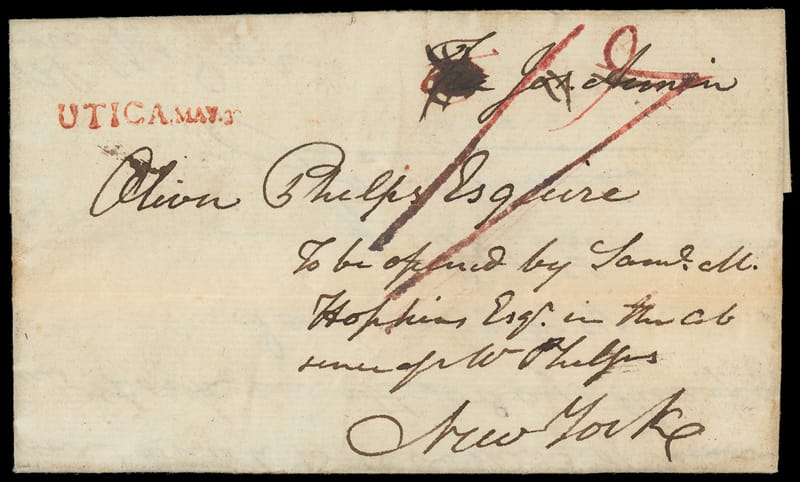 Jas. Annin
UTICA. MAY.
Oliver Phelps Esquire
To be opened by Saml. M.
Hopkins Esqr. in the ab
sence of Mr Phelps
New York